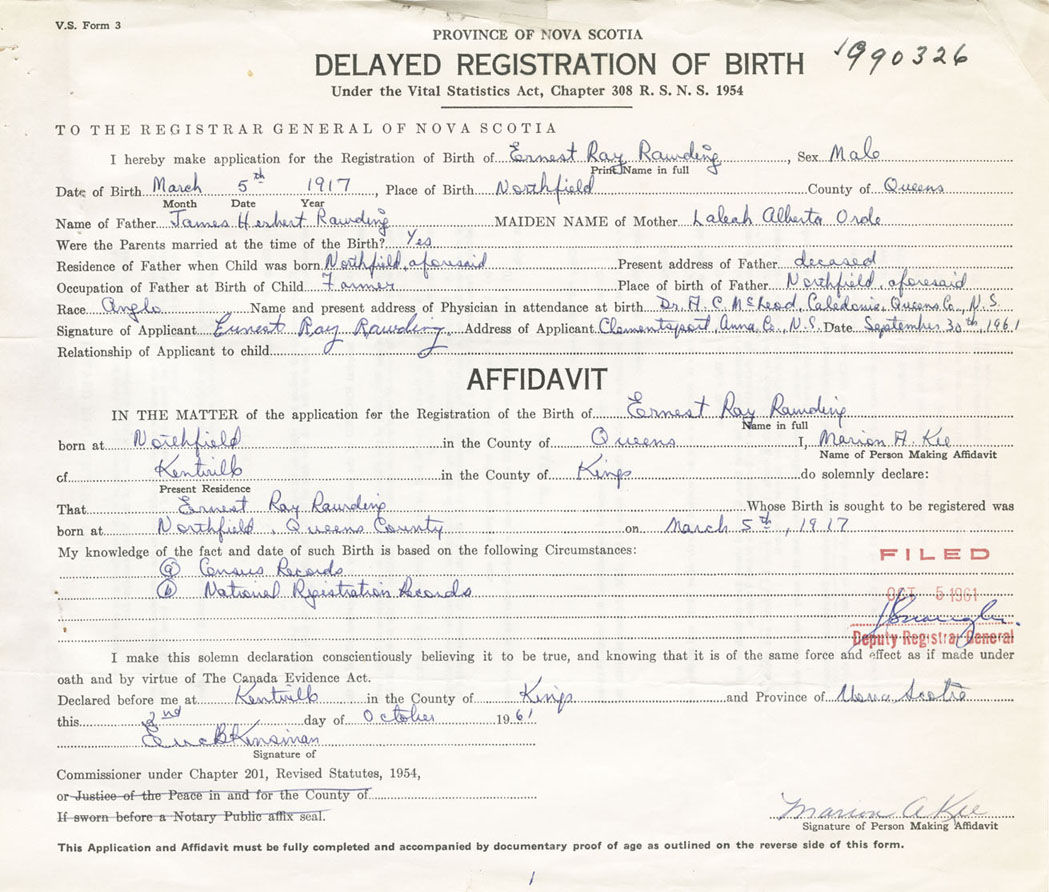 V.S. Form 3
PROVINCE OF NOVA SCOTIA
1990326
DELAYED REGISTRATION OF BIRTH
Under the Vital Statistics Act, Chapter 308 R. S. N. S. 1954
TO THE REGISTRAR GENERAL OF NOVA SCOTIA
I hereby make application for the Registration of Birth of Ernest Ray Rawding, Sex Male
Print Name in full
Date of Birth March 5th 1917, Place of Birth Northfield County of Queens
Month Date Year
Name of Father James Herbert Rawding MAIDEN NAME of Mother Laleah Alberta Orde
Were the Parents married at the time of the Birth? Yes
Residence of Father when Child was born Northfield, aforesaid Present address of Father decased
Occupation of Father at Birth of Child Farmer Place of birth of Father Northfield, aforesaid
Race Anglo Name and present address of Physician in attendance at birth Dr. A. C. McLeod, Caledonia, Queens Co., N.S.
Signature of Applicant Ernest Ray Rawding Address of Applicant Clementsport, Anna. Co., N.S. Date September 30th, 1961
Relationship of Applicant to child
AFFIDAVIT
IN THE MATTER of the application for the Registration of the Birth of Ernest Ray Rawding
Name in full
born at Northfield in the County of Queens I, Marion A. Kee
Name of Person Making Affidavit
of Kentville in the County of Kings do solemnly declare:
Present Residence
That Ernest Ray Rawding Whose Birth is sought to be registered was
born at Northfield, Queens County on March 5th, 1917
My knowledge of the fact and date of such Birth is based on the following Circumstances:
FILED
(a) Census Records
(b) National Registration Records
OCT 5 1961
Deputy Registrar General
I make this solemn declaration conscientiously believing it to be true, and knowing that it is of the same force and effect as if made under
oath and by virtue of The Canada Evidence Act.
Declared before me at Kentville in the County of Kings and Province of Nova Scotia
this 2nd day of October 1961
Eric B Kinsman
Signature of
Commissioner under Chapter 201, Revised Statutes, 1954,
or Justice of the Peace in and for the County of
If sworn before a Notary Public affix seal.
Marion A Kee
Signature of Person Making Affidavit
This Application and Affidavit must be fully completed and accompanied by documentary proof of age as outlined on the reverse side of this form.
1